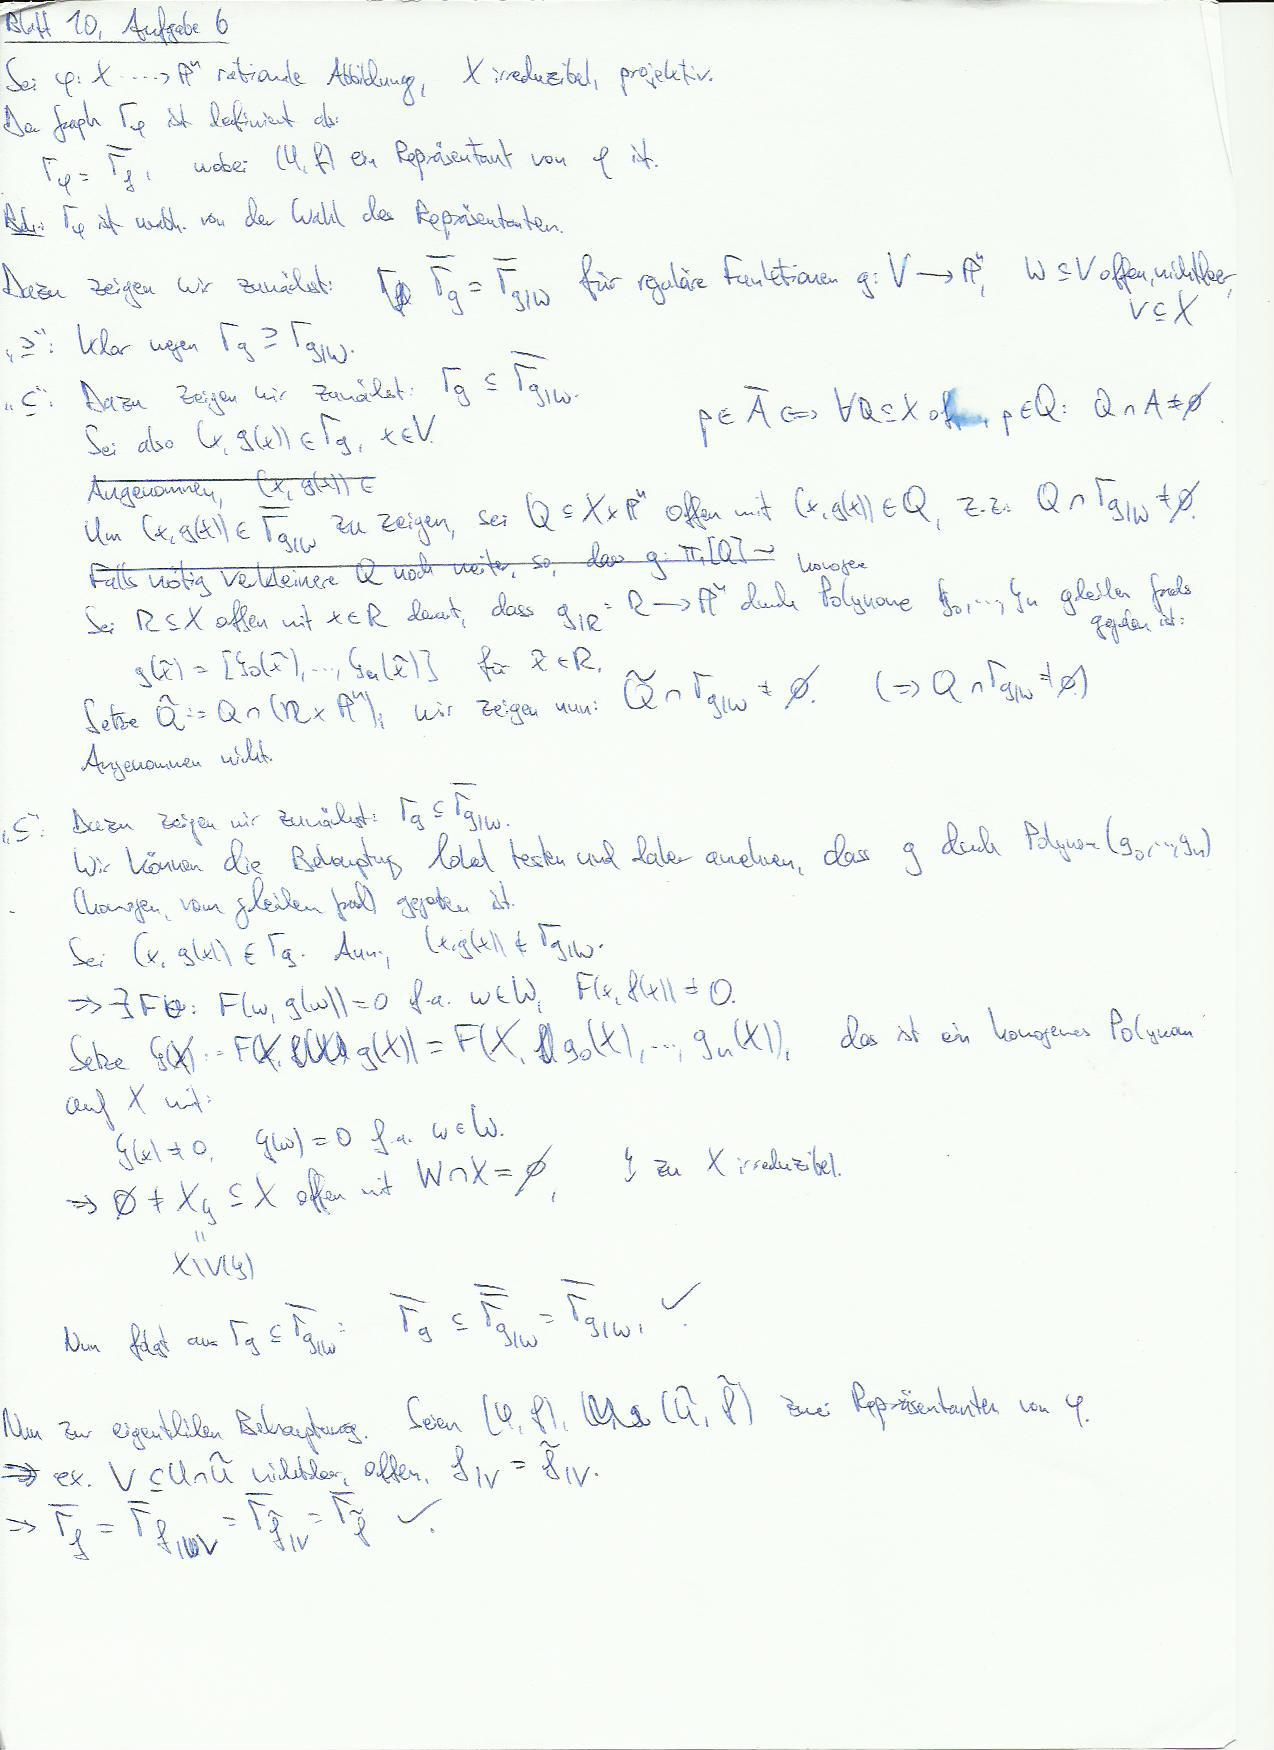 Blatt 10, Aufgabe 6
Sei φ: X ⇢ ℙⁿ rationale Abbildung, X irreduzibel, projektiv.
Der Graph Γ_φ ist definiert als:
Γ_φ = \overline{Γ_f}, wobei (U, f) ein Repräsentant von φ ist.
Beh.: Γ_φ ist unabh. von der Wahl des Repräsentanten.
Dazu zeigen wir zunächst: \overline{Γ_g} = \overline{Γ_{g|W}} für reguläre Funktionen g: V → ℙⁿ, W ⊆ V offen, nichtleer,
V ⊆ X
„⊇“: Klar wegen Γ_g ⊇ Γ_{g|W}.
„⊆“: Dazu zeigen wir zunächst: Γ_g ⊆ \overline{Γ_{g|W}}.
p ∈ \overline{A} ⇔ ∀Q ⊆ X off., p ∈ Q: Q ∩ A ≠ ∅.
Sei also (x, g(x)) ∈ Γ_g, x ∈ V.
Angenommen, (x, g(x)) ∈
Um (x, g(x)) ∈ \overline{Γ_{g|W}} zu zeigen, sei Q ⊆ X × ℙⁿ offen mit (x, g(x)) ∈ Q, z.z: Q ∩ Γ_{g|W} ≠ ∅.
Falls nötig verkleinere Q noch weiter, so, dass g: π₁[Q] →
homogene
Sei R ⊆ X offen mit x ∈ R derart, dass g|_R: R → ℙⁿ durch Polynome g₀, ..., gₙ gleichen Grads
gegeben ist:
g(x̃) = [g₀(x̃), ..., gₙ(x̃)] für x̃ ∈ R.
Setze Q̃ := Q ∩ (R × ℙⁿ), wir zeigen nun: Q̃ ∩ Γ_{g|W} ≠ ∅. (⇒ Q ∩ Γ_{g|W} ≠ ∅)
Angenommen nicht.
„⊆“: Dazu zeigen wir zunächst: Γ_g ⊆ \overline{Γ_{g|W}}.
Wir können die Behauptung lokal testen und daher annehmen, dass g durch Polynome (g₀, ..., gₙ)
(homogen, vom gleichen Grad) gegeben ist.
Sei (x, g(x)) ∈ Γ_g. Ann., (x, g(x)) ∉ \overline{Γ_{g|W}}.
⇒ ∃ F: F(w, g(w)) = 0 f.a. w ∈ W, F(x, f(x)) ≠ 0.
Setze G(X) := F(X, g(X)) = F(X, g₀(X), ..., gₙ(X)), das ist ein homogenes Polynom
auf X mit:
G(x) ≠ 0, G(w) = 0 f.a. w ∈ W.
⇒ ∅ ≠ X_G ⊆ X offen mit W ∩ X = ∅, ↯ zu X irreduzibel.
=
X \ V(G)
Nun folgt aus Γ_g ⊆ \overline{Γ_{g|W}}: \overline{Γ_g} ⊆ \overline{\overline{Γ_{g|W}}} = \overline{Γ_{g|W}}, ✓.
Nun zur eigentlichen Behauptung. Seien (U, f), (Ũ, f̃) zwei Repräsentanten von φ.
⇒ ex. V ⊆ U ∩ Ũ nichtleer, offen, f|_V = f̃|_V.
⇒ \overline{Γ_f} = \overline{Γ_{f|V}} = \overline{Γ_{f̃|V}} = \overline{Γ_{f̃}} ✓.